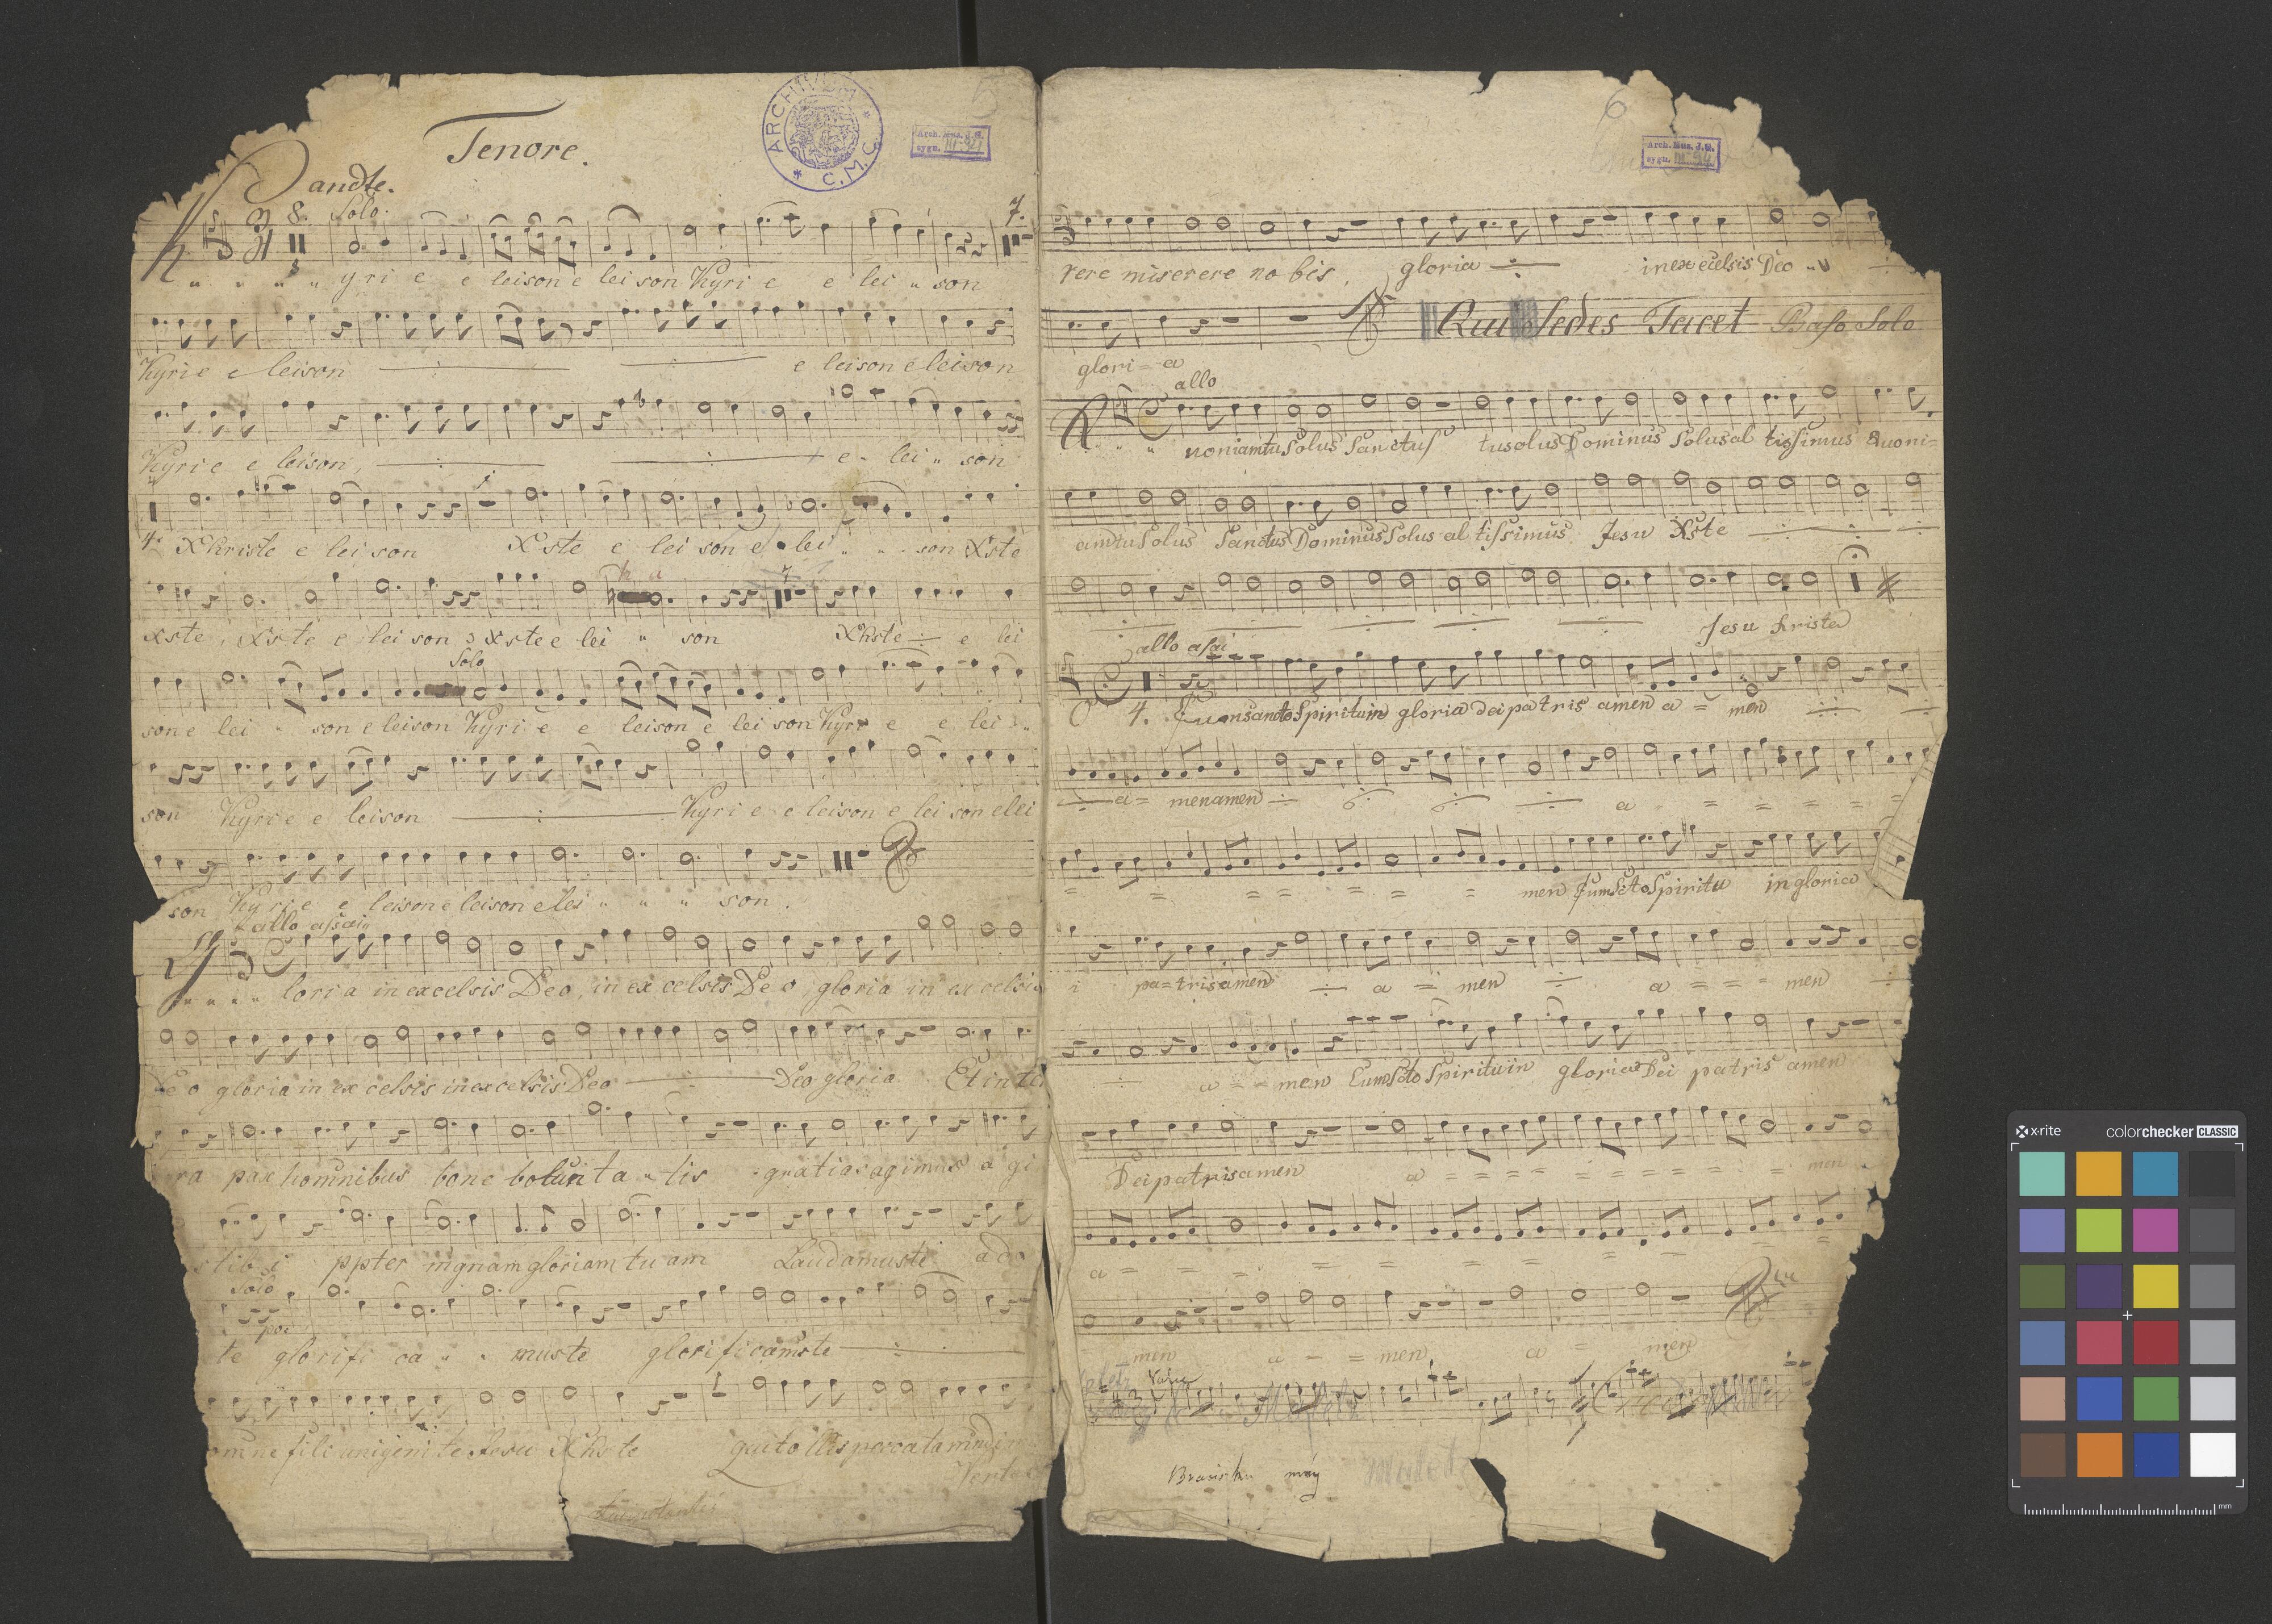 Tenore.
ARCHIVUM * C.M.C. *
5
Arch. Mus. J.G.
sygn. III-34
andte.
3 8. Solo.
7.
yri e e leison e lei son Kyri e e lei son
Kyrie e leison e leison e leison
Kyrie e leison, e lei son
4. Xhriste e lei son Xste e lei son e lei son Xste
xste, Xste e lei son xste e lei son Xhste e lei
Solo
son e lei son e leison Kyri e e leison e lei son Kyri e e lei
son Kyrie e leison Kyri e e leison e lei son e lei
son Kyrie e leison e leison e lei son.
allo assai
loria in excelsis Deo, in ex celsis Deo, gloria in ex celsis
Deo gloria in ex celsis in excelsis Deo Deo gloria Et in te
ra pax hominibus bone boluntatis gratias agimus a gi
s tibi ppter mgnam gloriam tuam Laudamuste ado
Solo
po:
te glorifi ca muste glorificamste
omne fili unigenite Jesu Xhste qui to llis peccata mundi
Verte
6
Arch. Mus. J.G.
sygn. III-34
rere miserere no bis, gloria in ex ecelsis Deo
glori-a
Qui Sedes Tacet Baso Solo
allo
uoniam tu Solus Sanctus tu solus Dominus Solus al tissimus Quoni=
amtu Solus Sanctus Dominus Solus al tissimus Jesu Xste
Jesu hriste
allo asai
4. Cum sancto Spiritu in gloria dei patris amen a = men
a = men amen a = = = = =
= = = = = = = men Cum Scto Spiritu in gloria
i pa=tris amen a = men a = = = men
a = = men Cum Scto Spiritu in gloria Dei patris amen
Dei patris amen a = = = = = = = = men
a = = = = = = = =
men a - = men a = men
x-rite
colorchecker CLASSIC
mm